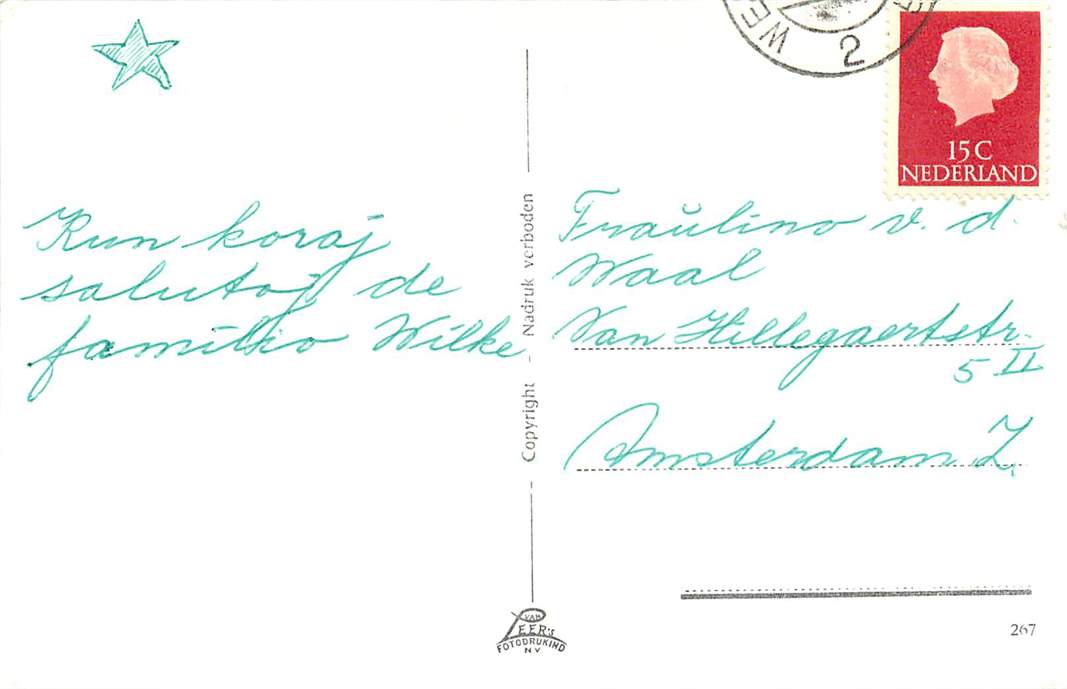 Kun koraj
salutoj de
familio Wilke
Copyright - Nadruk verboden
VAN
LEER's
FOTODRUKIND
N.V.
WE
2
15 C
NEDERLAND
Fraŭlino v. d.
Waal
Van Hillegaertstr.
5 II
Amsterdam Z.
267